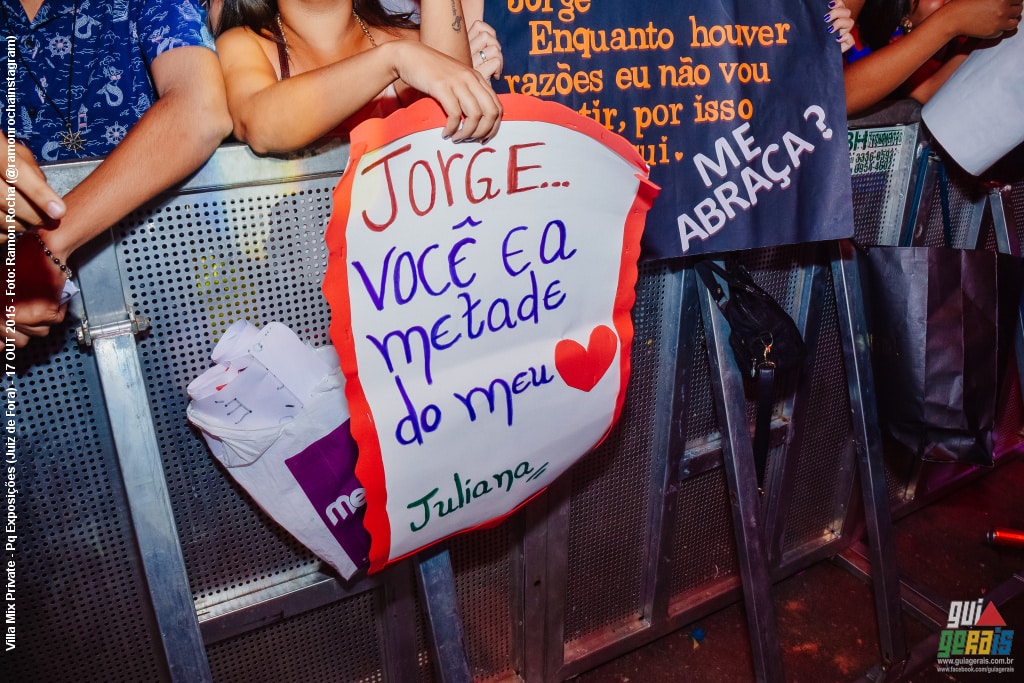 Jorge
Enquanto houver
razões eu não vou
tir, por isso
ui.
ME
ABRAÇA?
JORGE...
VOCÊ E a
metade
do meu
Juliana
me
Villa Mix Private - Pq Exposições (Juiz de Fora) - 17 OUT 2015 - Foto: Ramon Rocha (@ramonrochainstagram)
gui
gerais
www.guiagerais.com.br
www.facebook.com/guiagerais